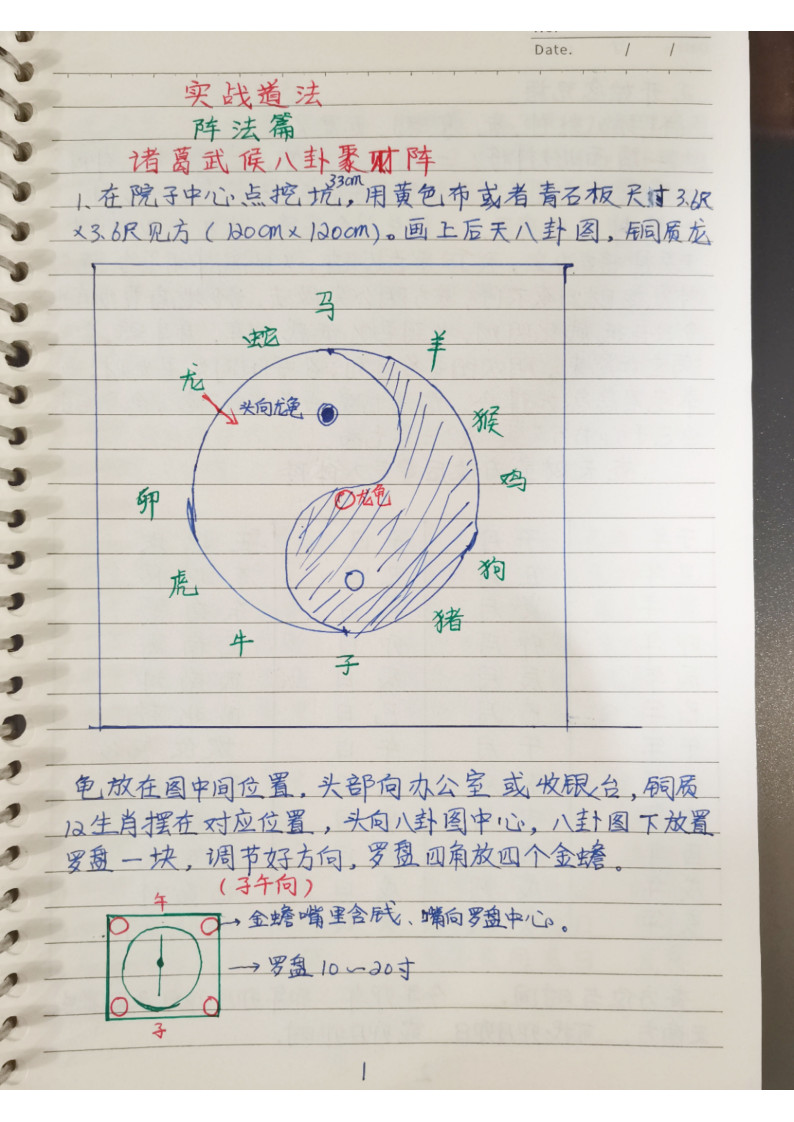 Date. / /
实战道法
阵法篇
诸葛武候八卦聚财阵
1、在院子中心点挖坑33cm，用黄色布或者青石板尺寸3.6尺
×3.6尺见方（120cm×120cm）。画上后天八卦图，铜质龙
马
蛇
羊
龙
头向龙龟
猴
鸡
卯
龙龟
狗
虎
猪
牛
子
龟放在图中间位置，头部向办公室或收银台，铜质
12生肖摆在对应位置，头向八卦图中心，八卦图下放置
罗盘一块，调节好方向，罗盘四角放四个金蟾。
（子午向）
午
→金蟾嘴里含钱、嘴向罗盘中心。
→罗盘10～20寸
子
1